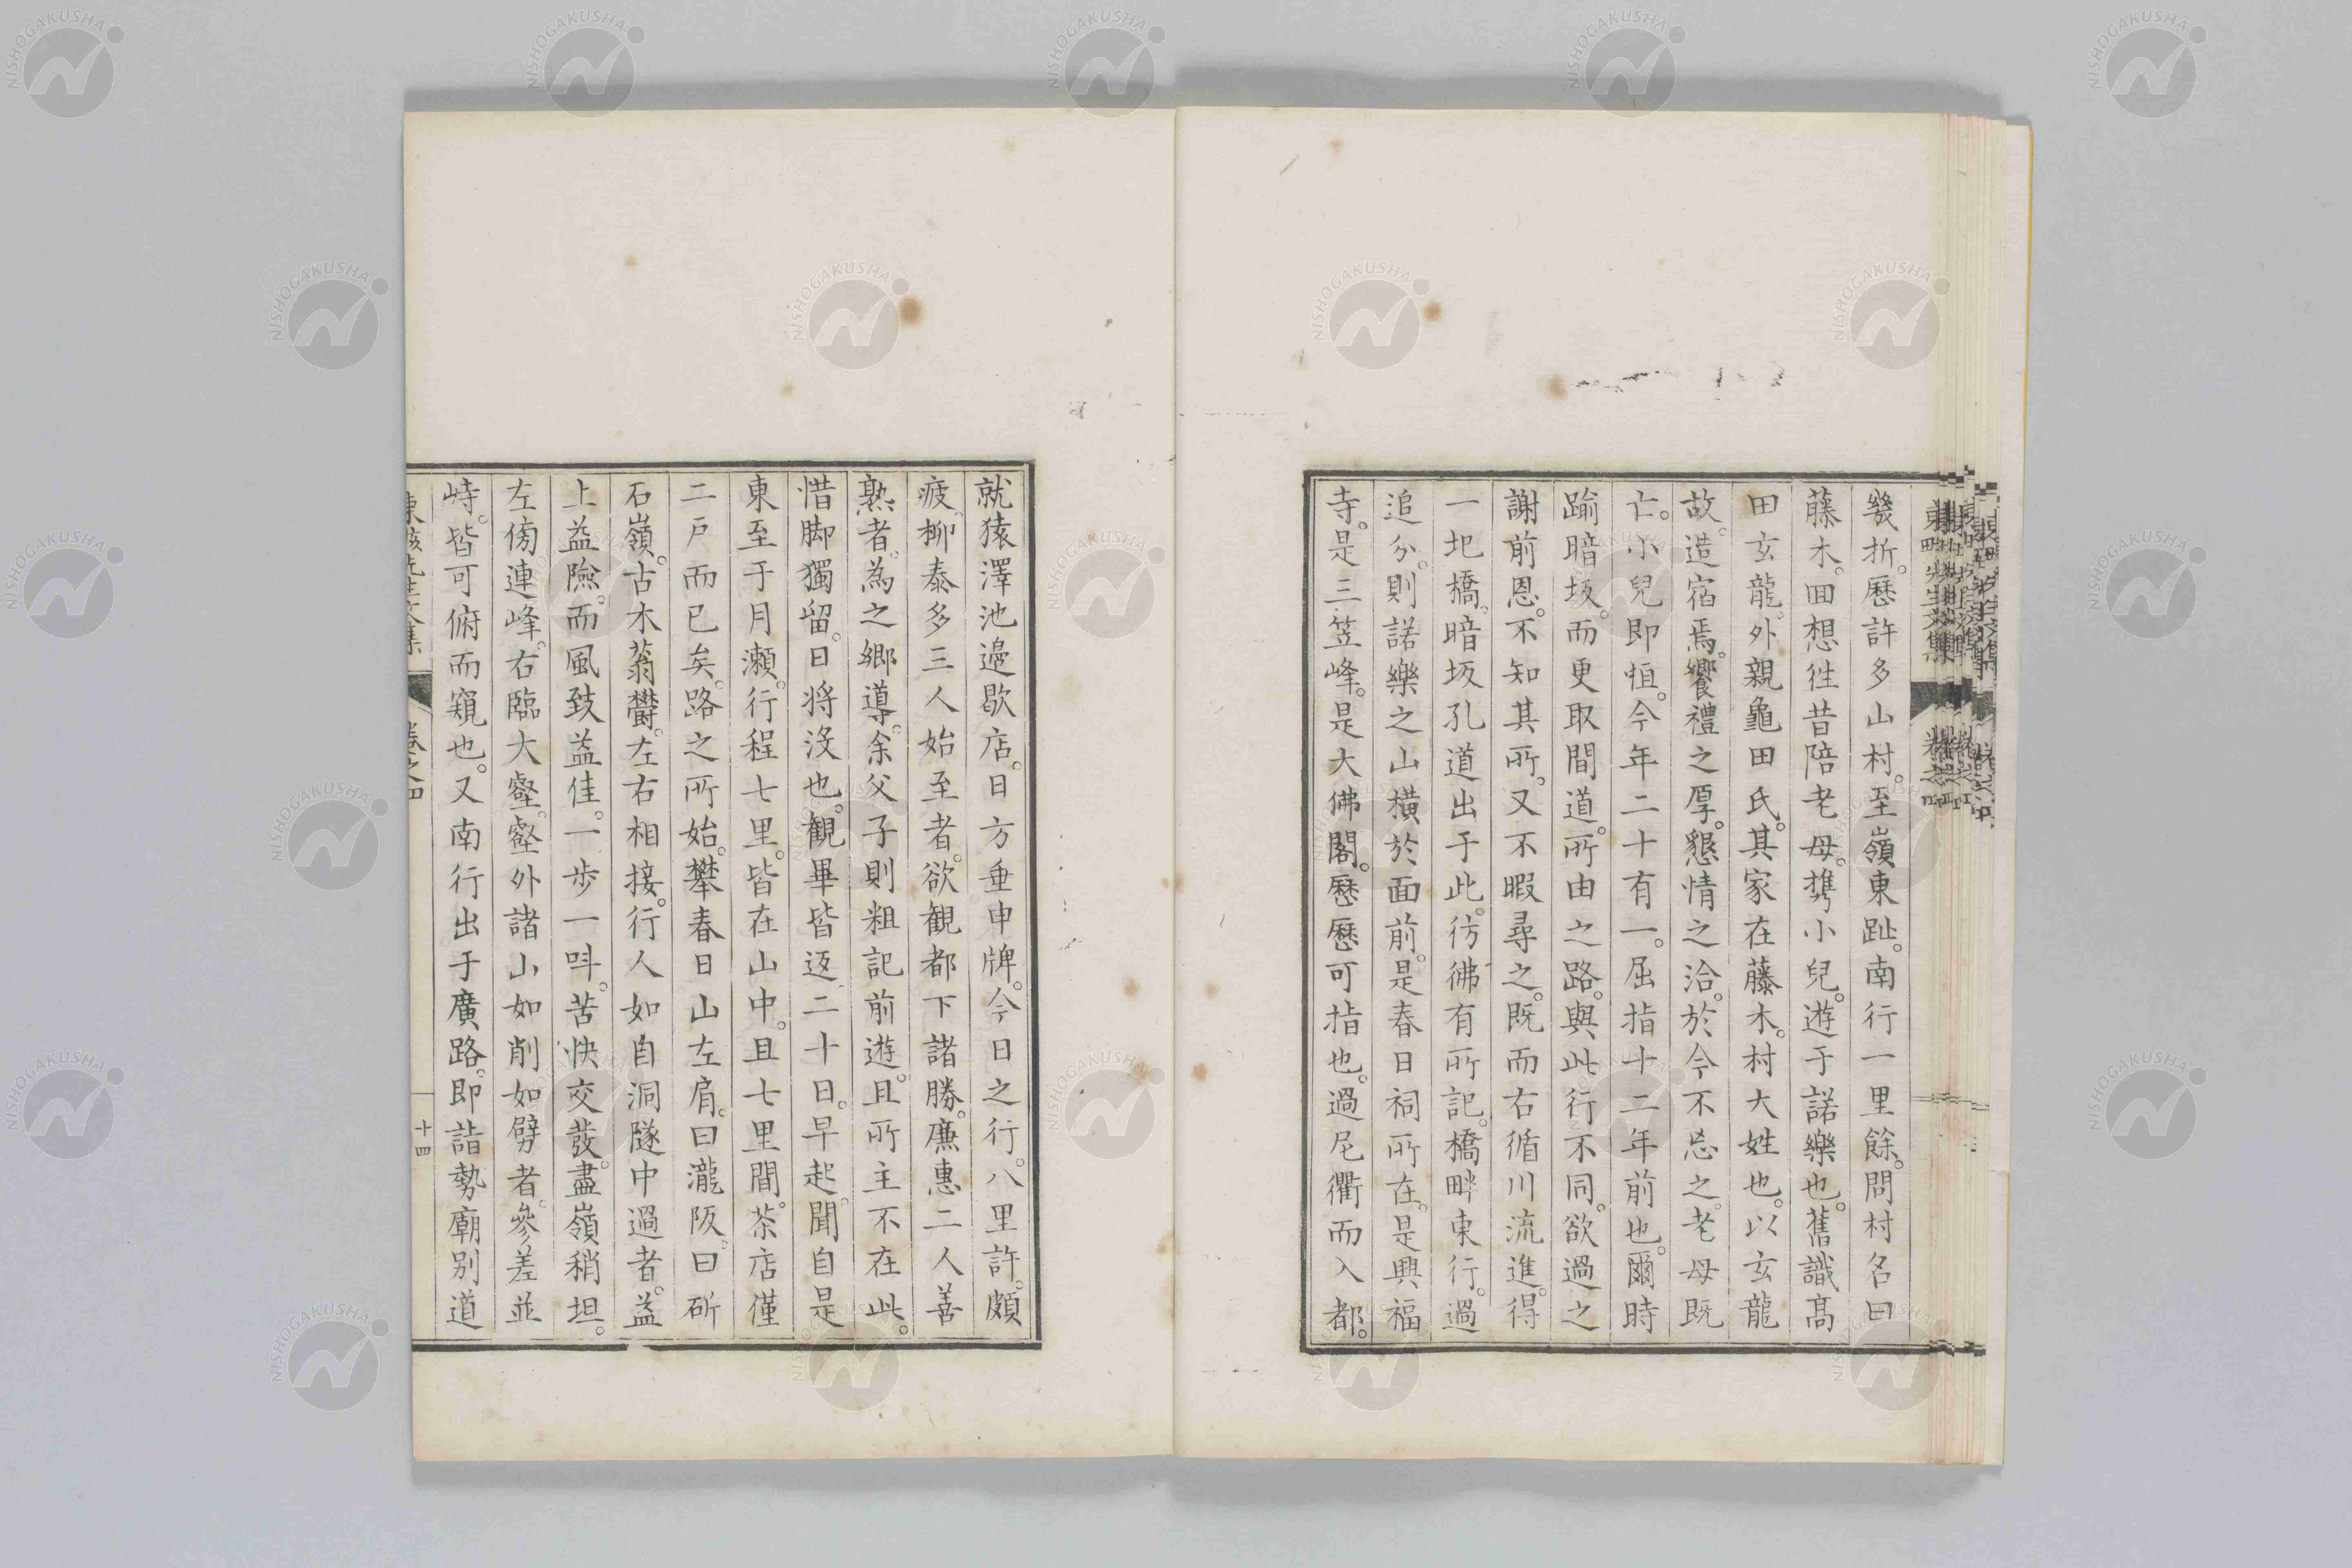 幾折。歷許多山村。至嶺東趾。南行一里餘。問村名曰
藤木。回想徃昔陪老母。携小兒。遊于諾樂也。舊識高
田玄龍。外親龜田氏。其家在藤木。村大姓也。以玄龍
故。造宿焉。饗禮之厚。懇情之洽。於今不忘之。老母既
亡。小兒即恒。今年二十有一。屈指十二年前也。爾時
踰暗坂。而更取間道。所由之路。與此行不同。欲過之
謝前恩。不知其所。又不暇尋之。既而右循川流進。得
一圯橋。暗坂孔道出于此。彷彿有所記。橋畔東行。過
追分。則諾樂之山橫於面前。是春日祠所在。是興福
寺。是三笠峰。是大佛閣。歷歷可指也。過尼衢而入都。
就猿澤池邊歇店。日方垂申牌。今日之行。八里許。頗
疲。柳泰多三人始至者。欲觀都下諸勝。廉惠二人善
熟者。為之鄉導。余父子則粗記前遊。且所主不在此。
惜脚獨留。日將沒也。觀畢皆返二十日。早起。聞自是
東至于月瀨。行程七里。皆在山中。且七里間。茶店僅
二戶而已矣。路之所始。攀春日山左肩。曰瀧阪。曰斫
石嶺。古木蓊欝。左右相接。行人如自洞隧中過者。益
上益險。而風致益佳。一步一呌。苦快交發。盡嶺稍坦。
左傍連峰。右臨大壑。壑外諸山如削如劈者。參差並
峙。皆可俯而窺也。又南行出于廣路。即詣勢廟別道
卷之四
十四